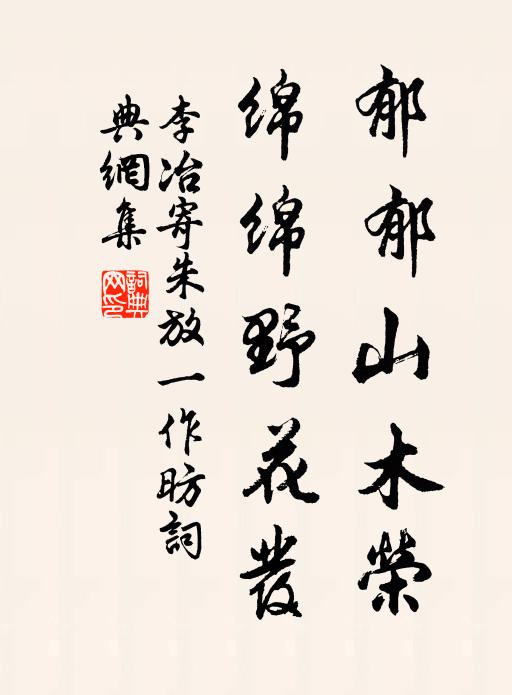 郁郁山木榮
綿綿野花發
李冶寄朱放一作昉詞
典網集
詞典網印